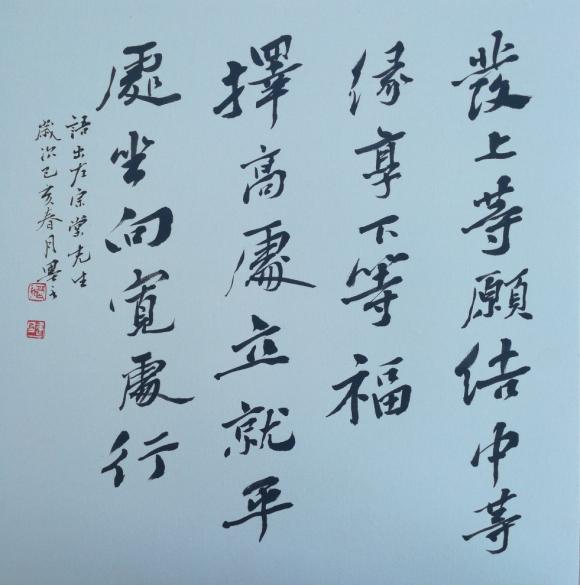 發上等願結中等
缘享下等福
擇高處立就平
處坐向寬處行
語出左宗棠先生
歲次己亥春月